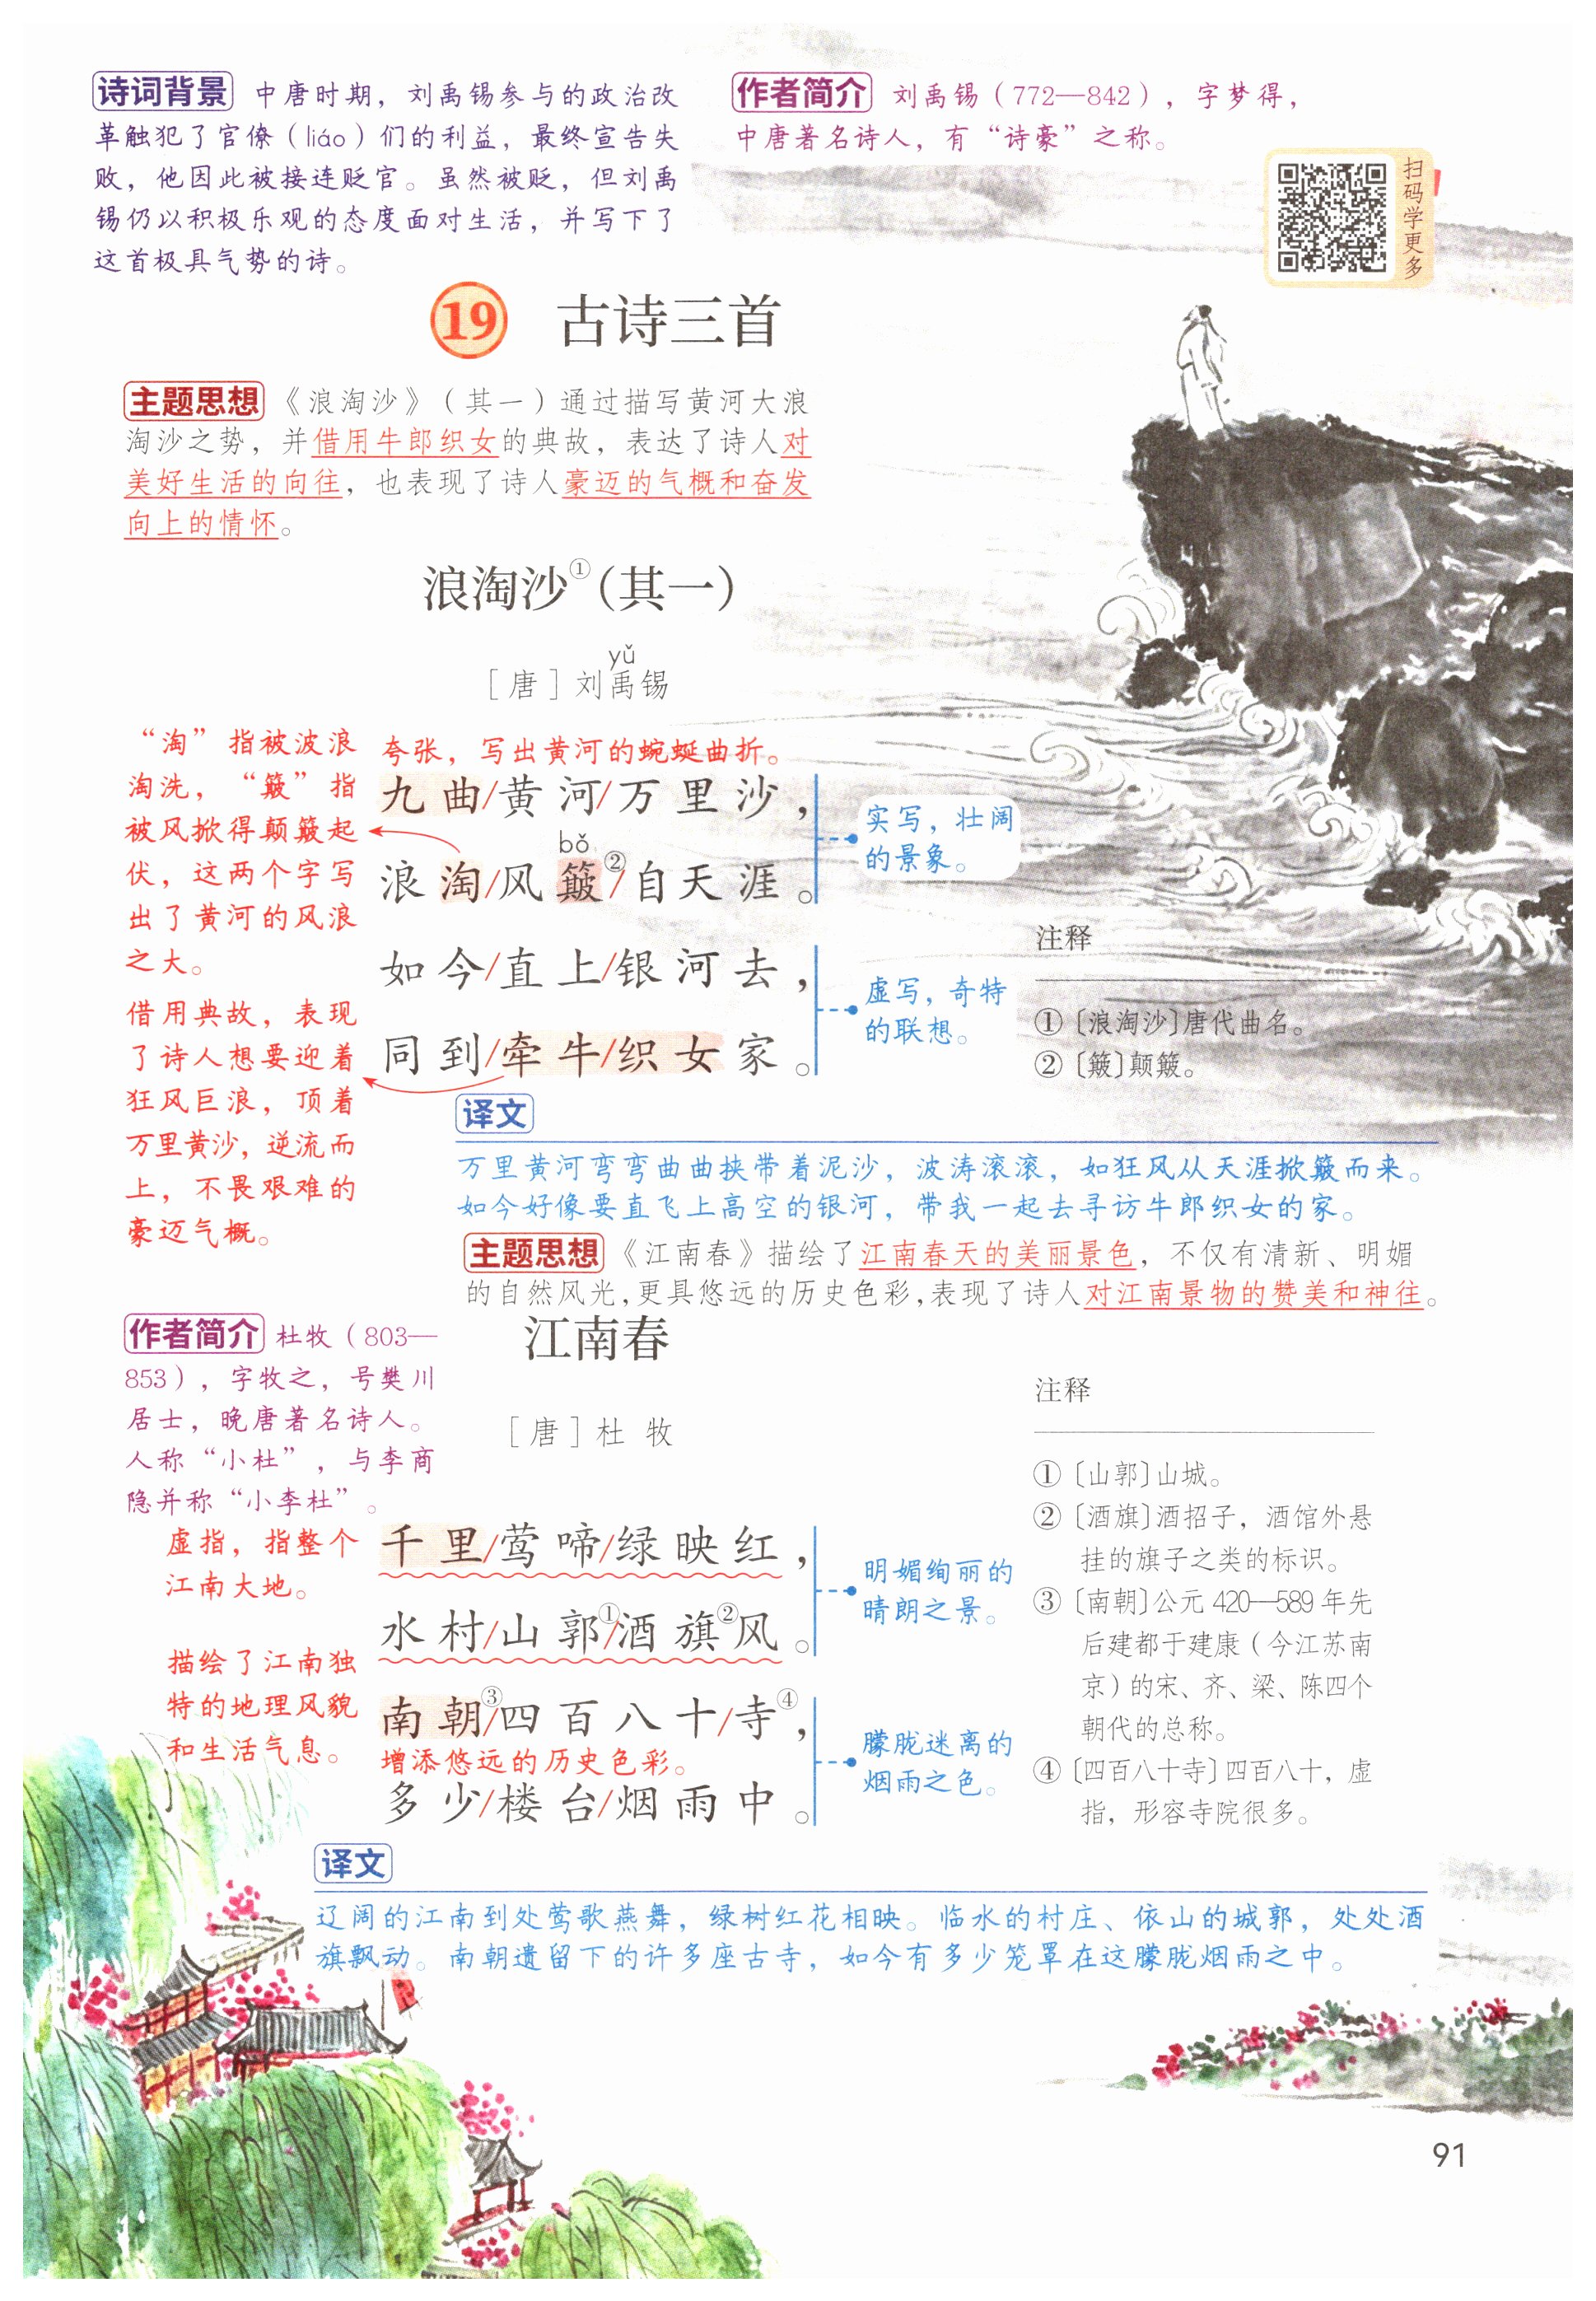 诗词背景 中唐时期，刘禹锡参与的政治改
革触犯了官僚（liáo）们的利益，最终宣告失
败，他因此被接连贬官。虽然被贬，但刘禹
锡仍以积极乐观的态度面对生活，并写下了
这首极具气势的诗。
作者简介 刘禹锡（772—842），字梦得，
中唐著名诗人，有“诗豪”之称。
扫码学更多
19 古诗三首
主题思想 《浪淘沙》（其一）通过描写黄河大浪
淘沙之势，并借用牛郎织女的典故，表达了诗人对
美好生活的向往，也表现了诗人豪迈的气概和奋发
向上的情怀。
浪淘沙①（其一）
yǔ
［唐］刘禹锡
“淘”指被波浪
淘洗，“簸”指
被风掀得颠簸起
伏，这两个字写
出了黄河的风浪
之大。
借用典故，表现
了诗人想要迎着
狂风巨浪，顶着
万里黄沙，逆流而
上，不畏艰难的
豪迈气概。
夸张，写出黄河的蜿蜒曲折。
九曲/黄河/万里沙，
bǒ
浪淘/风簸②/自天涯。
如今/直上/银河去，
同到/牵牛/织女家。
实写，壮阔
的景象。
虚写，奇特
的联想。
注释
①〔浪淘沙〕唐代曲名。
②〔簸〕颠簸。
译文
万里黄河弯弯曲曲挟带着泥沙，波涛滚滚，如狂风从天涯掀簸而来。
如今好像要直飞上高空的银河，带我一起去寻访牛郎织女的家。
主题思想 《江南春》描绘了江南春天的美丽景色，不仅有清新、明媚
的自然风光，更具悠远的历史色彩，表现了诗人对江南景物的赞美和神往。
江南春
［唐］杜 牧
作者简介 杜牧（803—
853），字牧之，号樊川
居士，晚唐著名诗人。
人称“小杜”，与李商
隐并称“小李杜”。
虚指，指整个
江南大地。
描绘了江南独
特的地理风貌
和生活气息。
千里/莺啼/绿映红，
水村/山郭①/酒旗②风。
南朝③/四百八十/寺④，
增添悠远的历史色彩。
多少/楼台/烟雨中。
明媚绚丽的
晴朗之景。
朦胧迷离的
烟雨之色。
注释
①〔山郭〕山城。
②〔酒旗〕酒招子，酒馆外悬
挂的旗子之类的标识。
③〔南朝〕公元 420—589 年先
后建都于建康（今江苏南
京）的宋、齐、梁、陈四个
朝代的总称。
④〔四百八十寺〕四百八十，虚
指，形容寺院很多。
译文
辽阔的江南到处莺歌燕舞，绿树红花相映。临水的村庄、依山的城郭，处处酒
旗飘动。南朝遗留下的许多座古寺，如今有多少笼罩在这朦胧烟雨之中。
91